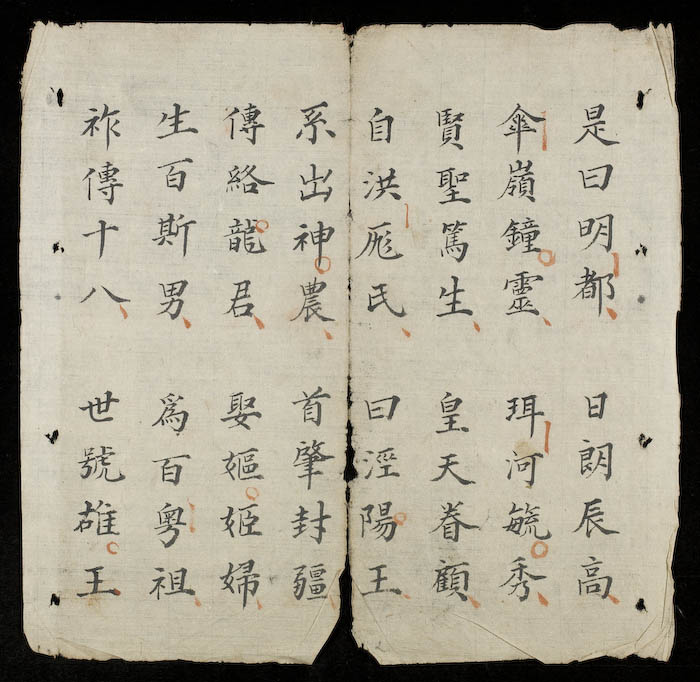 是曰明都日朗辰高
傘嶺鐘靈珥河毓秀
賢聖篤生皇天眷顧
自洪厖氏曰涇陽王
系出神農首肇封疆
傳絡龍君娶嫗姬婦
生百斯男爲百粤祖
祚傳十八世號雄王